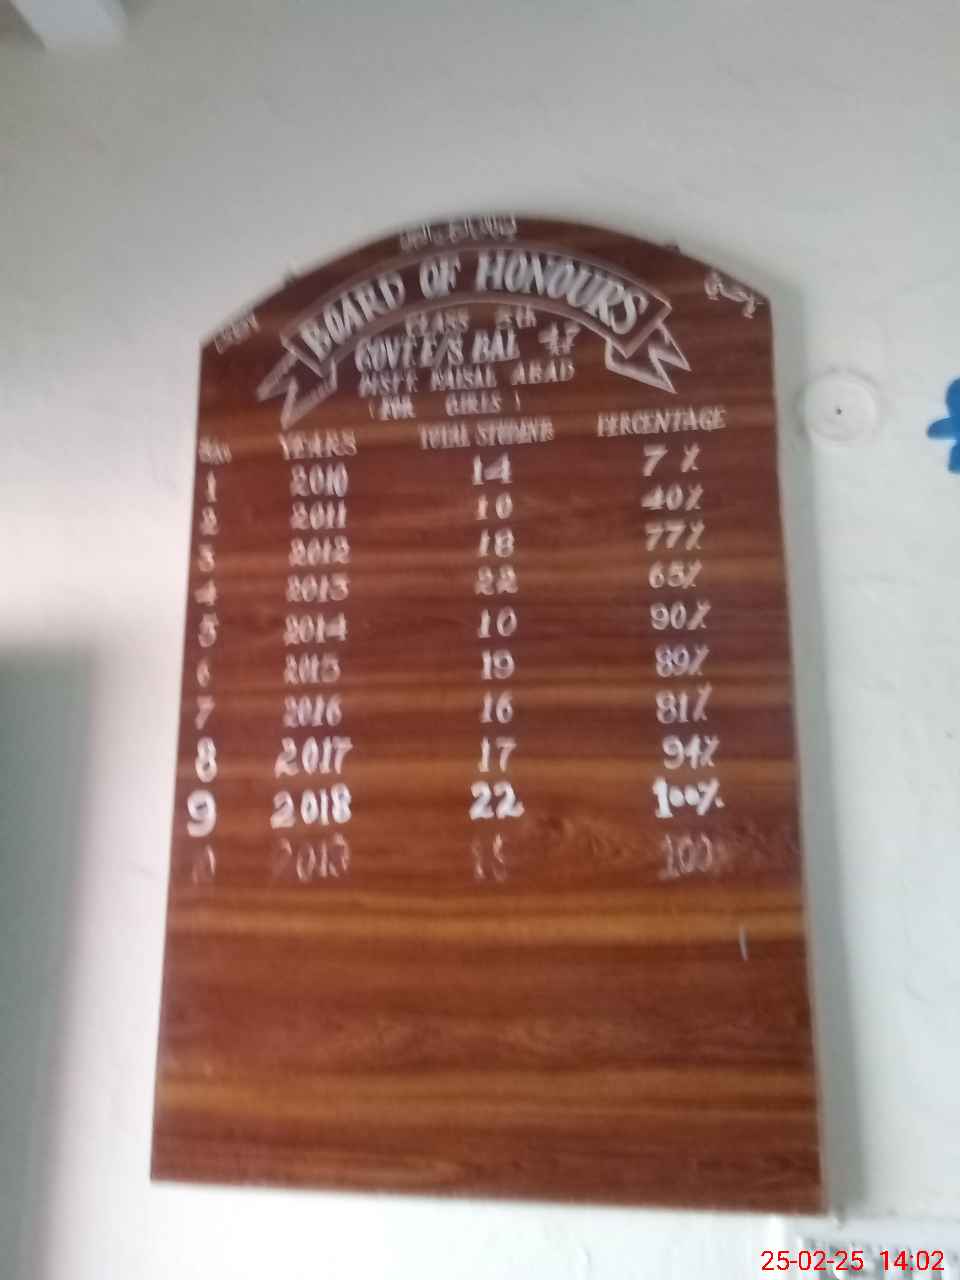 BOARD OF HONOURS
CLASS 5th
GOVT. E/S BAL
DISTT FAISAL ABAD
( FOR GIRLS )
YEARS TOTAL STUDENTS PERCENTAGE
1 2010 14 7 %
2 2011 10 40%
3 2012 18 77%
4 2013 22 65%
5 2014 10 90%
6 2015 19 89%
7 2016 16 81%
8 2017 17 94%
9 2018 22 100%
2019 100%
25-02-25 14:02